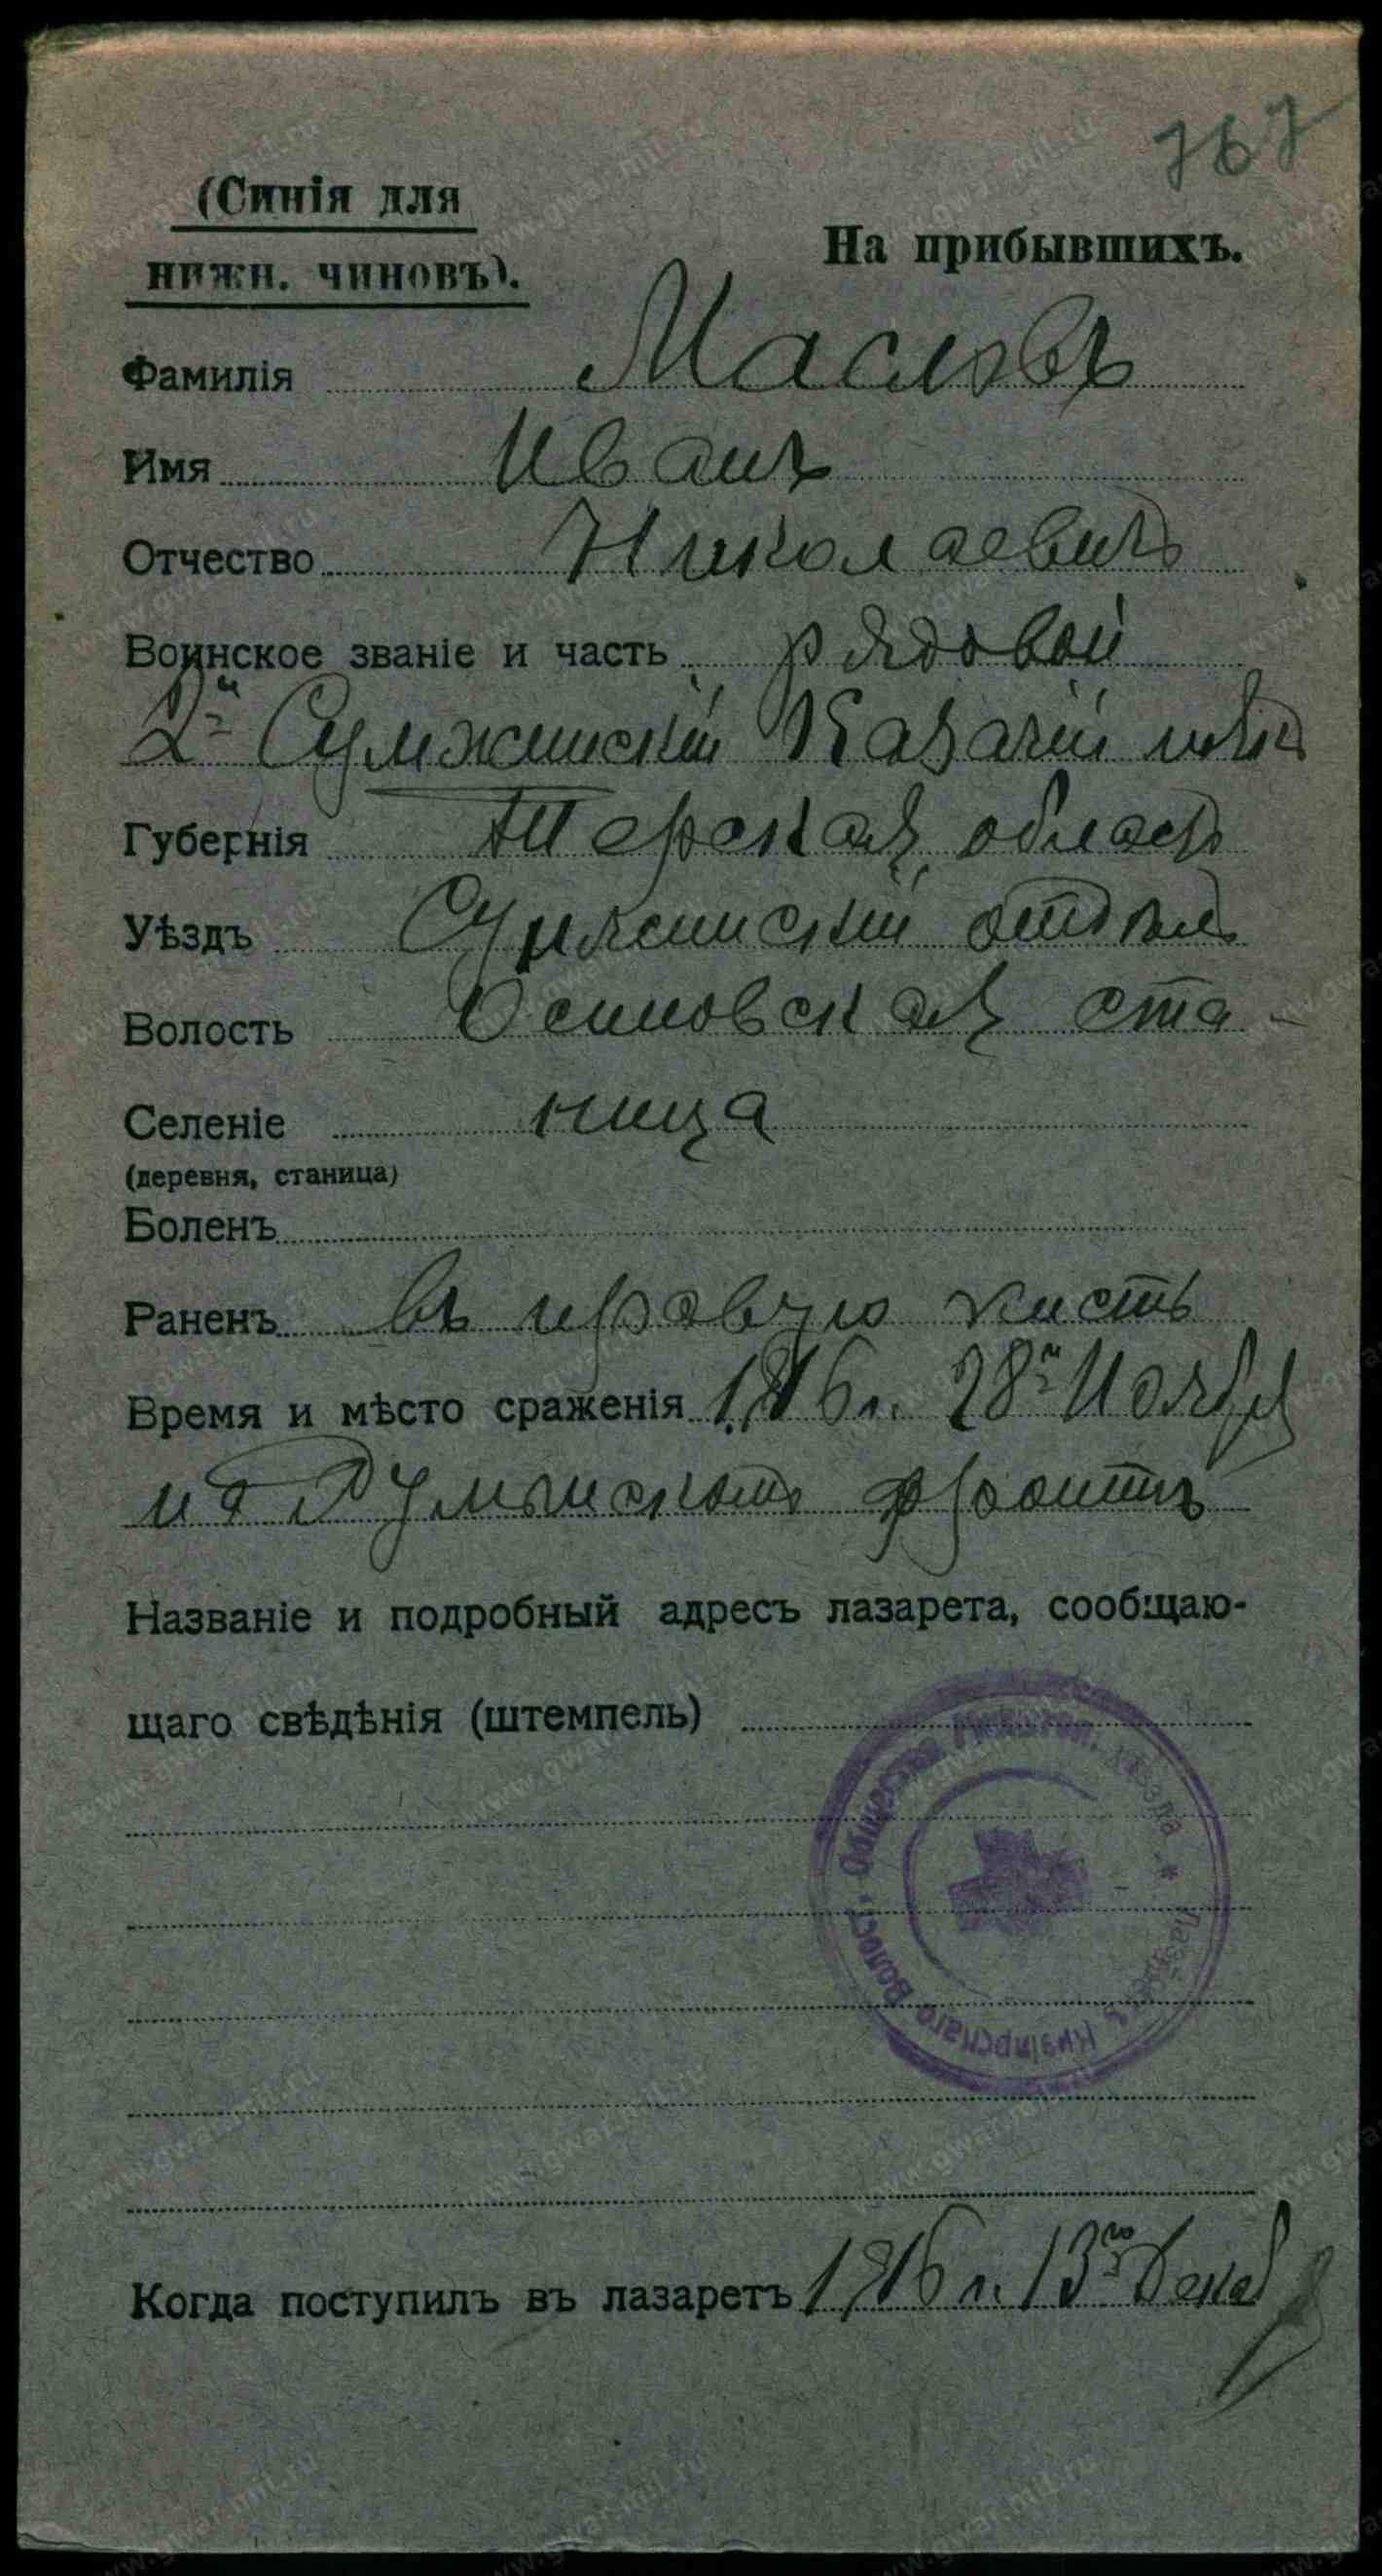 767
(Синія для
нижн. чиновъ).
На прибывшихъ.
Фамилія Масловъ
Имя Иванъ
Отчество Николаевичъ
Воинское званіе и часть рядовой
2й Сумженскій Казачій полкъ
Губернія Терская область
Уѣздъ Сунженскій отдѣлъ
Волость Осиновская ста-
Селеніе ница
(деревня, станица)
Боленъ
Раненъ въ правую кисть
Время и мѣсто сраженія 1916 г. 28й Ноября
на Румынскомъ фронтѣ
Названіе и подробный адресъ лазарета, сообщаю-
щаго свѣдѣнія (штемпель)
Лазаретъ Кизіярскаго Волост. Общества уѣзда *
Когда поступилъ въ лазаретъ 1916 г. 13го Декаб
www.gwar.mil.ru